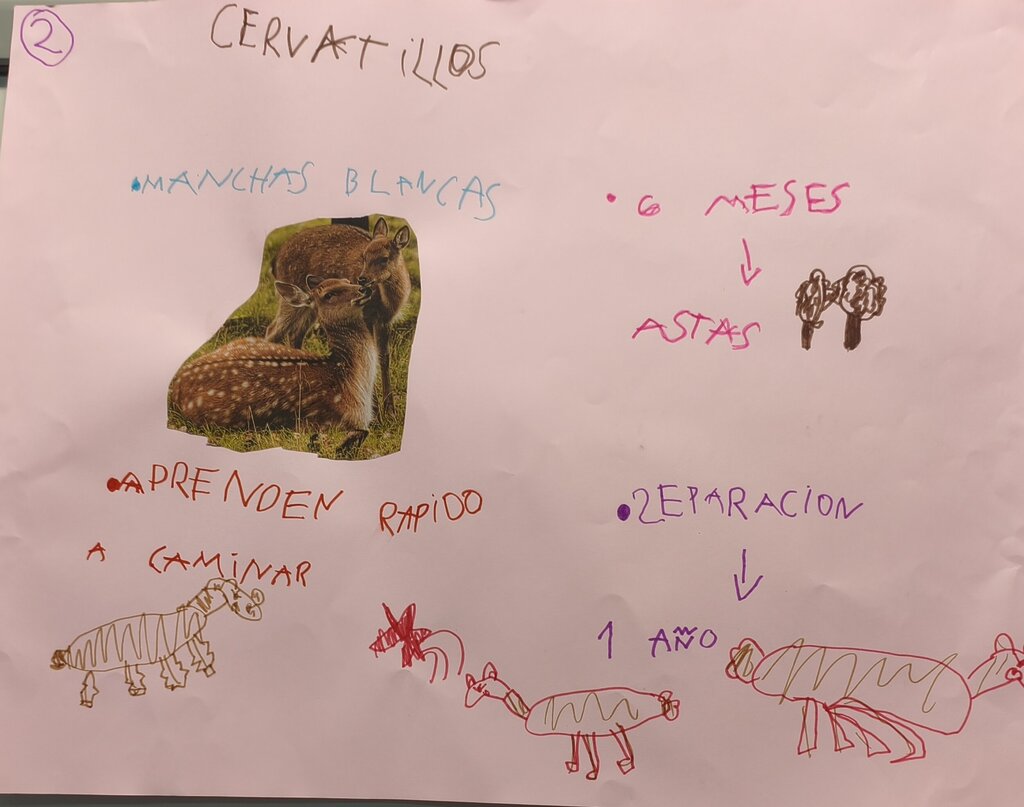 2
CERVATILLOS
•MANCHAS BLANCAS
• 6 MESES
↓
ASTAS
•APRENDEN RAPIDO
A CAMINAR
•ZEPARACION
↓
1 AÑO